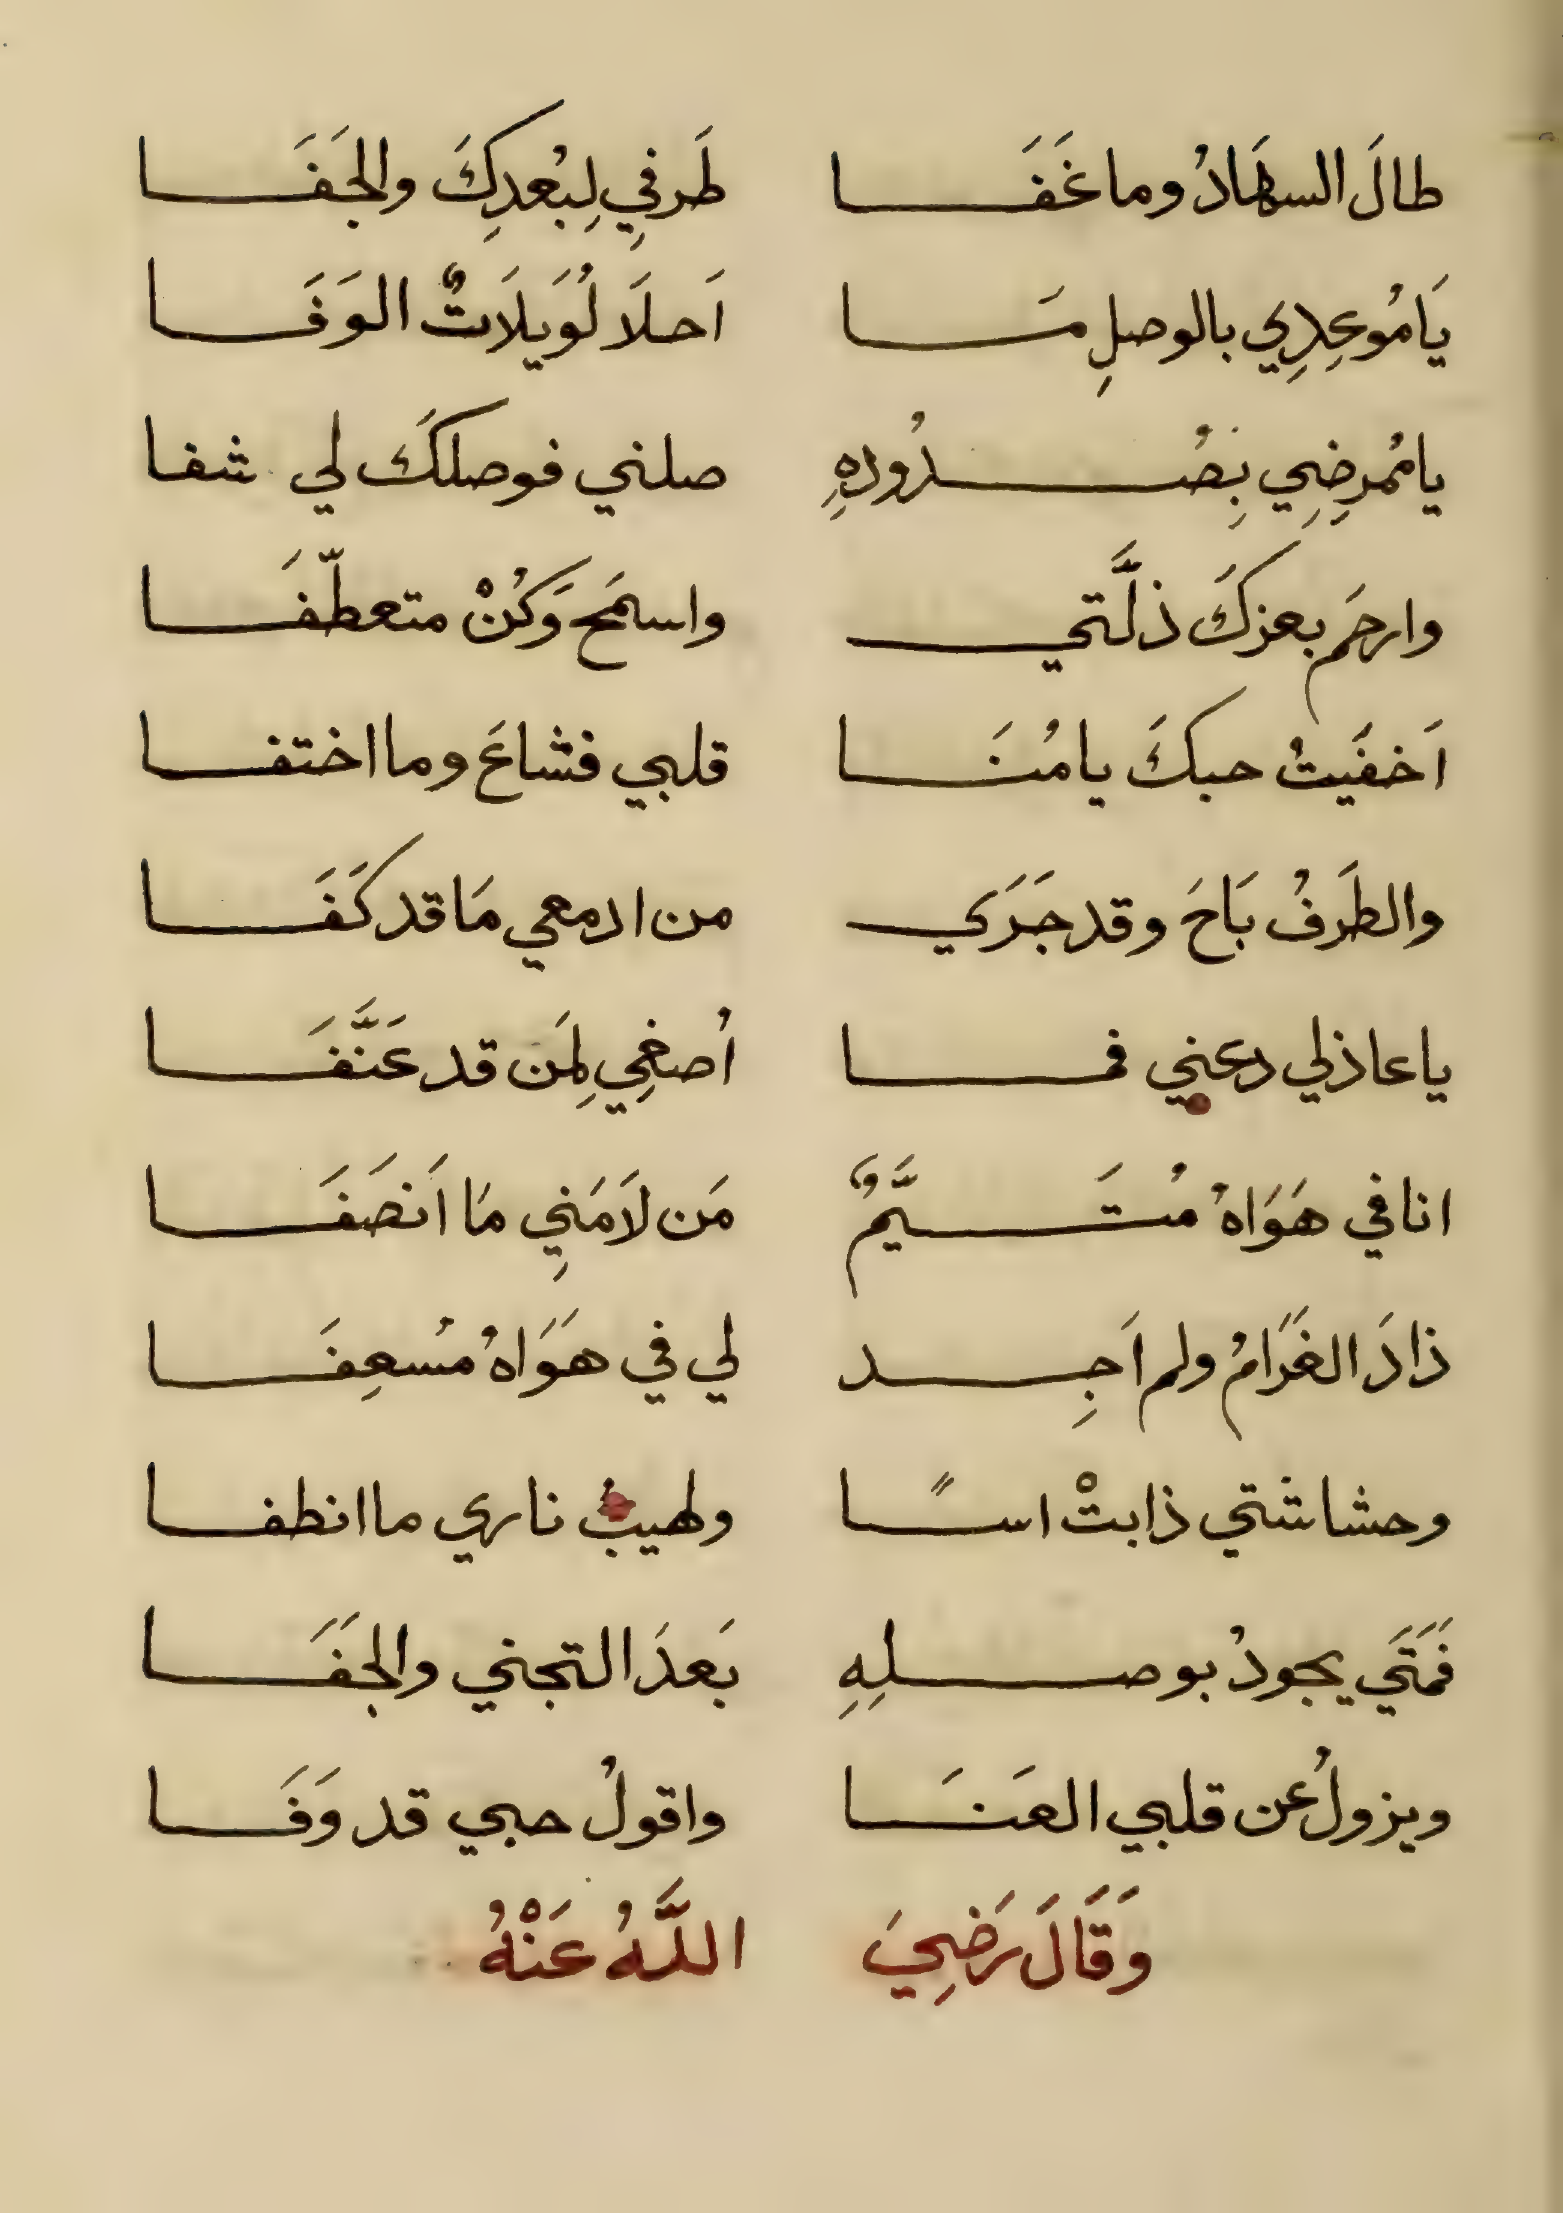 طالَ السهَادُ وما غَفَا طَرفي لِبُعدِكَ والجَفَا
يَا مُوعِدِي بالوصلِ مَا اَحلَا لُوَيلَاتٌ الوَفَا
يا مُمرِضِي بِصُدُودِهِ صلني فوصلكَ لي شفا
وارحَم بعزكَ ذلَّتي واسمَح وَكُنْ متعطّفَا
اَخفَيتُ حبكَ يا مُنَا قلبي فشاعَ وما اختفا
والطَرفُ بَاحَ وقد جَرَي من ادمعي مَا قد كَفَا
يا عاذلي دعني فما اُصغِي لِمَن قد عَنَّفَا
انا في هَوَاهُ مُتَيَّمٌ مَن لَامَنِي مَا اَنصَفَا
ذادَ الغَرَامُ ولم اَجِد لي في هَوَاهُ مُسعِفَا
وحشاشتي ذابتْ اسًا ولهيبُ ناري ما انطفا
فَمَتَي يجودُ بوصلِهِ بَعدَ التجني والجَفَا
ويزولُ عن قلبي العَنَا واقولُ حبي قد وَفَا
وَقَالَ رَضِيَ اللَّهُ عَنْهُ